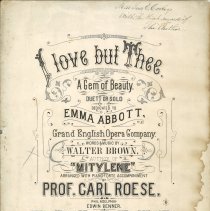 I love but Thee.
A Gem of Beauty.
DUETT OR SOLO
DEDICATED TO
EMMA ABBOTT,
Grand English Opera Company.
WORDS & MUSIC BY
WALTER BROWN.
"MITYLENE"
ARRANGED WITH PIANOFORTE ACCOMPANIMENT
BY
PROF. CARL ROESE.
PHILADELPHIA
EDWIN BENNER